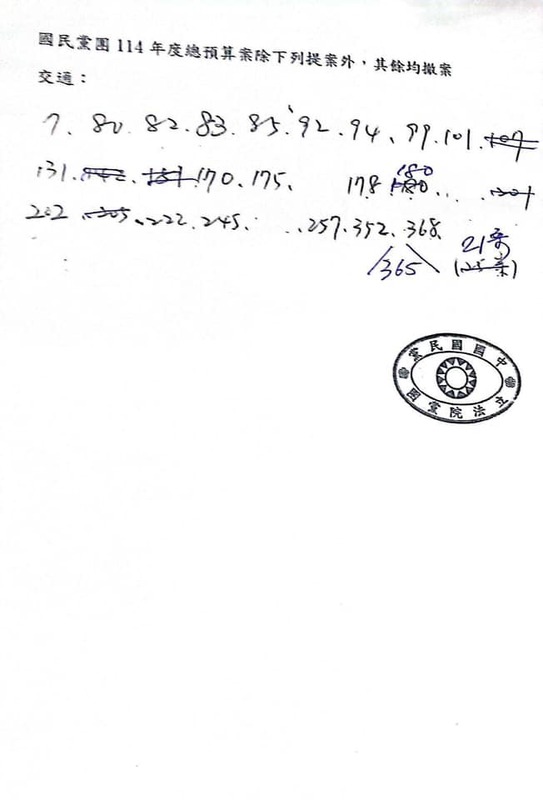 國民黨團 114 年度總預算案除下列提案外，其餘均撤案
交通：
7、80、82、83、85、92、94、99、101、107
131、142、151、170、175、178、180、180、201
202、205、222、245、257、352、368
365
21案
(25案)
中國國民黨
立法院黨團